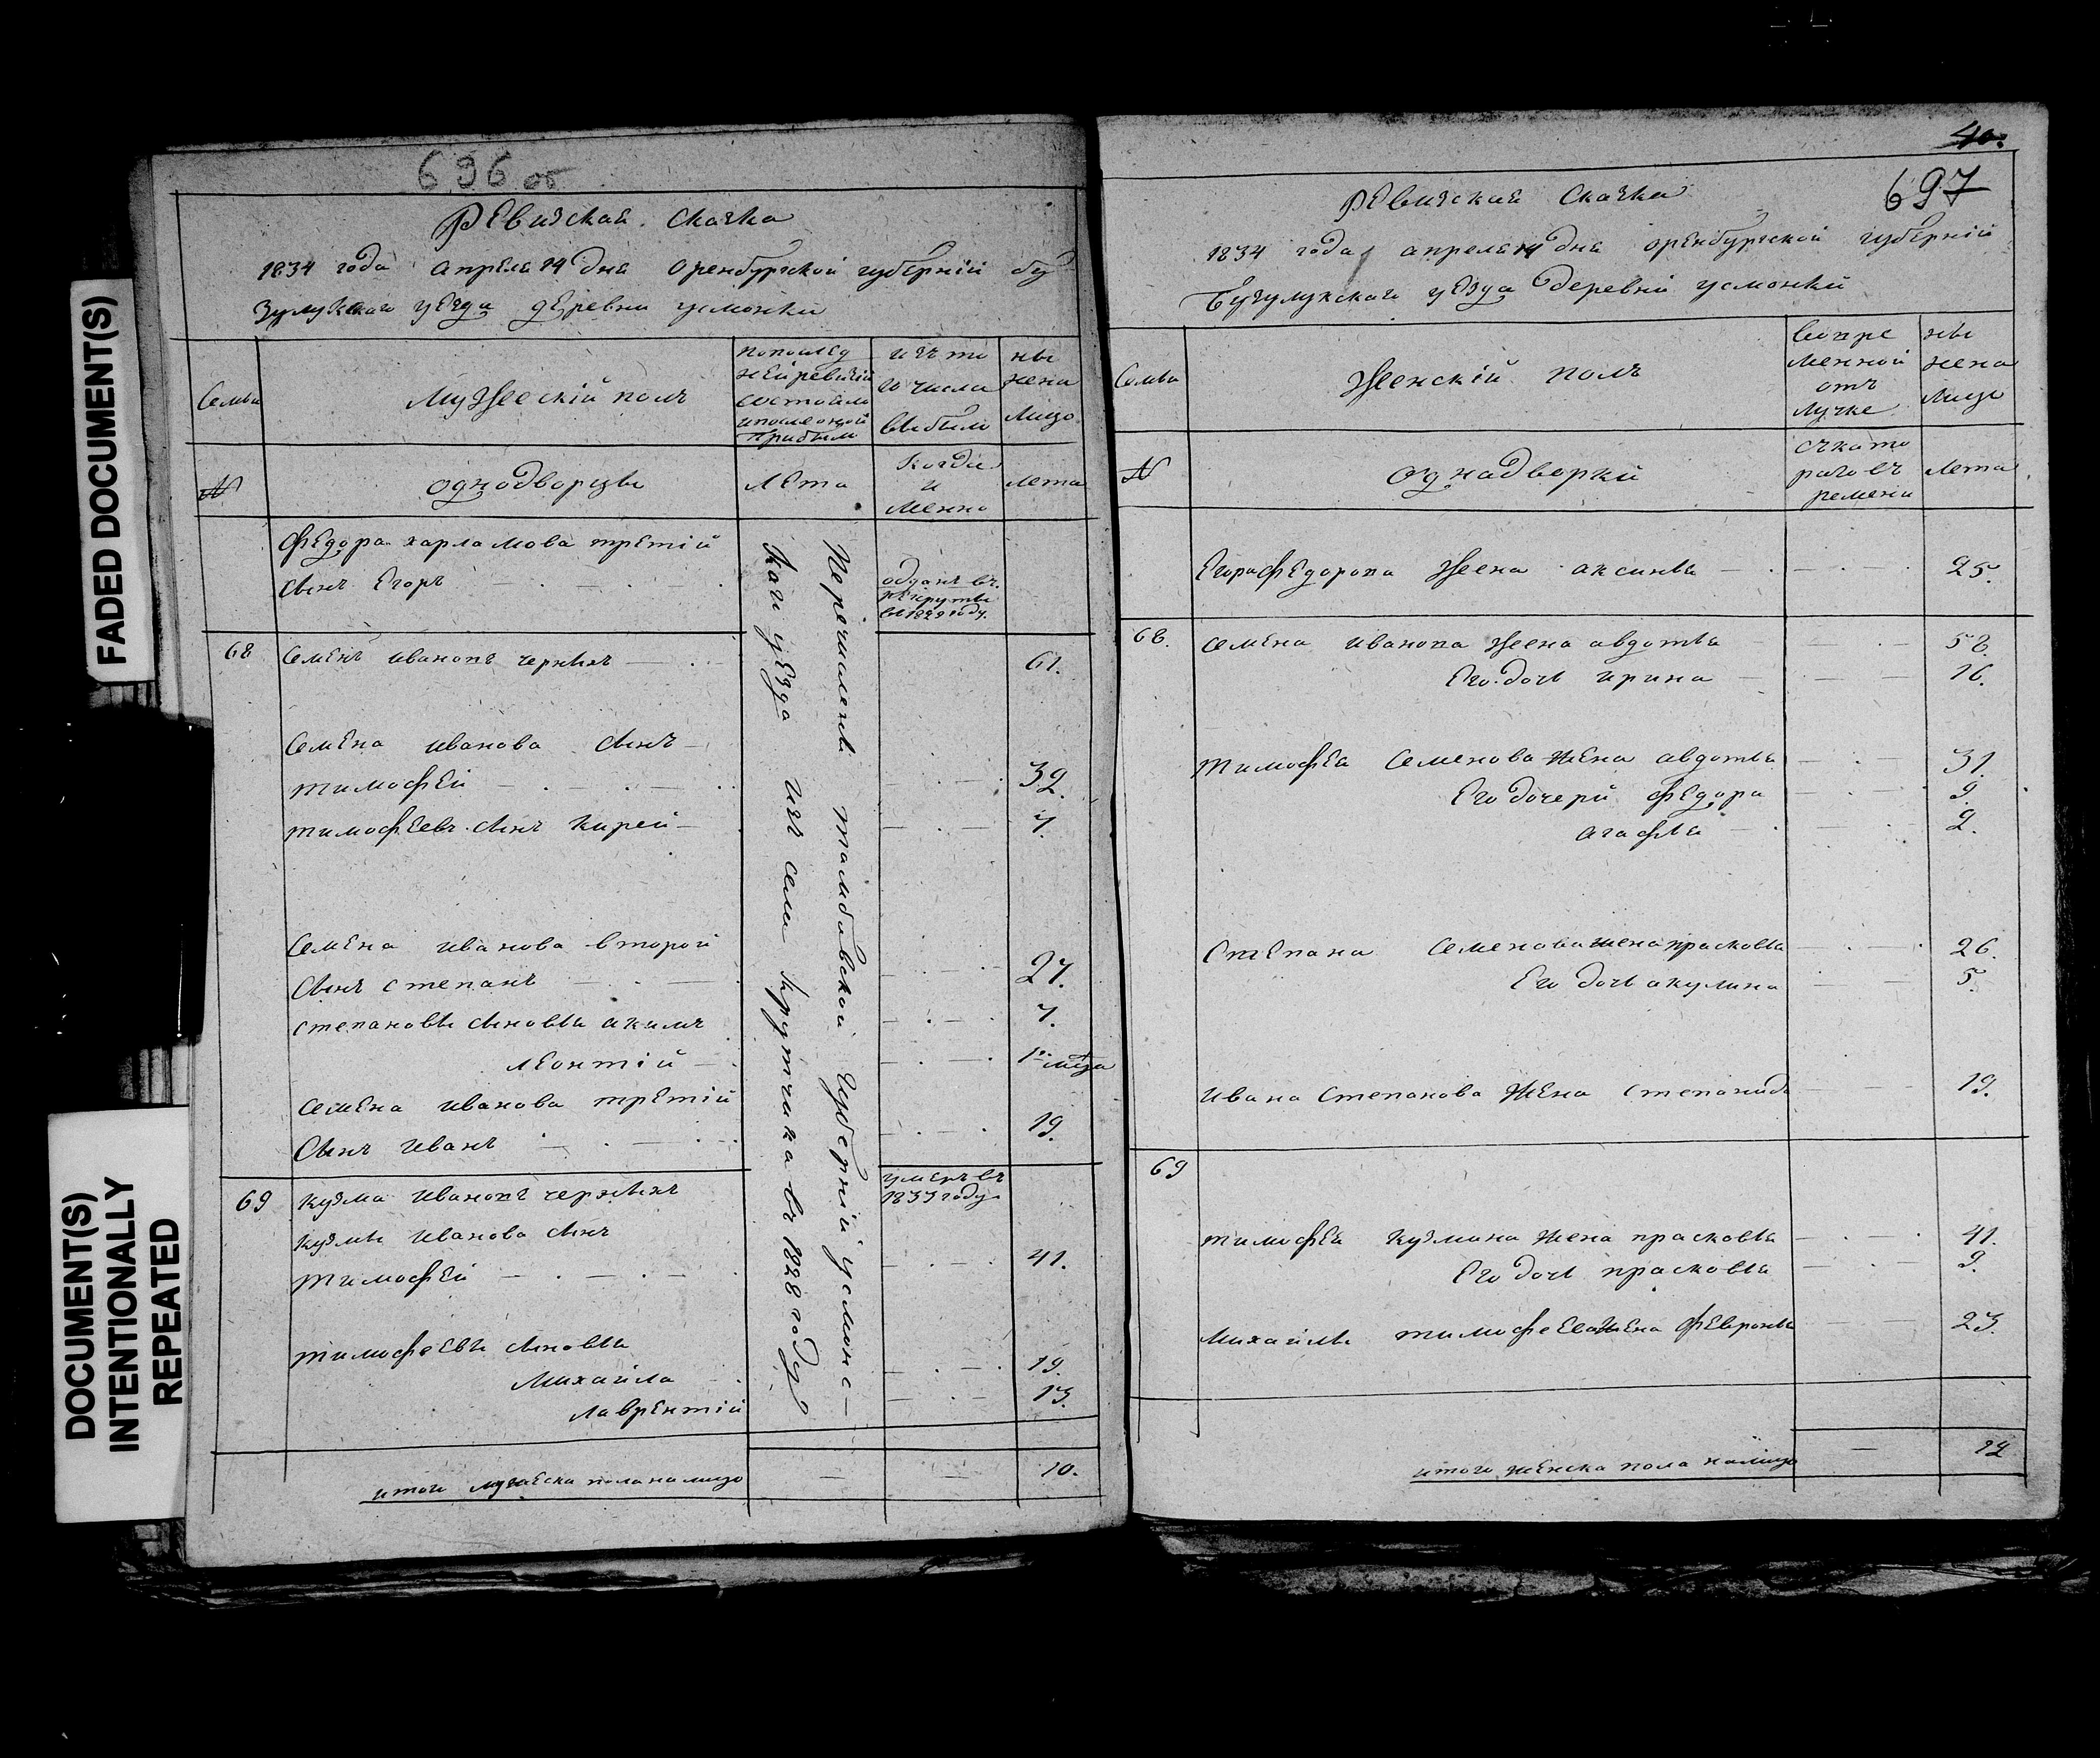 FADED DOCUMENT(S)
DOCUMENT(S)
INTENTIONALLY
REPEATED
696 об
Ревизская Сказка
1834 года апреля 14 дня Оренбургской губернии бу
зулукскаго уезда деревни усмонки
Семьи
Мужеский полъ
попослед
ней ревизии
состояло
и после оной
прибыло
изъ то
го числа
выбыло
ны
нена
лицо
№
однодворцы
лета
Когда
и
менно
лета
Федора харламова третий
сынъ Егоръ
одданъ въ
рекруты
въ 1829 году.
68 Семенъ ивановъ черныхъ 61.
Семена иванова сынъ
тимофей 32.
тимофеевъ сынъ Кирей 7.
Семена иванова второй
сынъ степанъ 27.
степановы сыновья акимъ 7.
леонтий 10 мца
семена иванова третий
сынъ иванъ 19.
69 кузма ивановъ черныхъ
умеръ въ
1833 году
кузмы иванова сынъ
тимофей 41.
тимофеевы сыновья
Михайла 19.
лаврентий 13.
Перечислены тамбовской губернии усманс
каго уезда изъ села крутчика въ 1828 году
итого мужеска пола налицо — — 10.
40.
697
Ревизская Сказка
1834 года апреля 14 дня оренбургской губернии
Бузулукскаго уезда деревни усмонки
Семьи
Женский полъ
вовре
менной
отъ
лучке
ны
нена
лицо
№
однадворки
съ като
раго въ
ремени
лета
Егора Федорова жена аксинья 25.
68. семена иванова жена авдотья 58.
Его дочь ирина 16.
тимофея Семенова жена авдотья 31.
Его дочери федора 9.
агафья 2.
степана Семенова жена прасковья 26.
Его дочь акулина 5.
ивана степанова жена степанида 19.
69
тимофея кузмина жена прасковья 41.
Его дочь прасковья 9.
михайлы тимофеева жена февронья 23.
итого женска пола налицо — 12